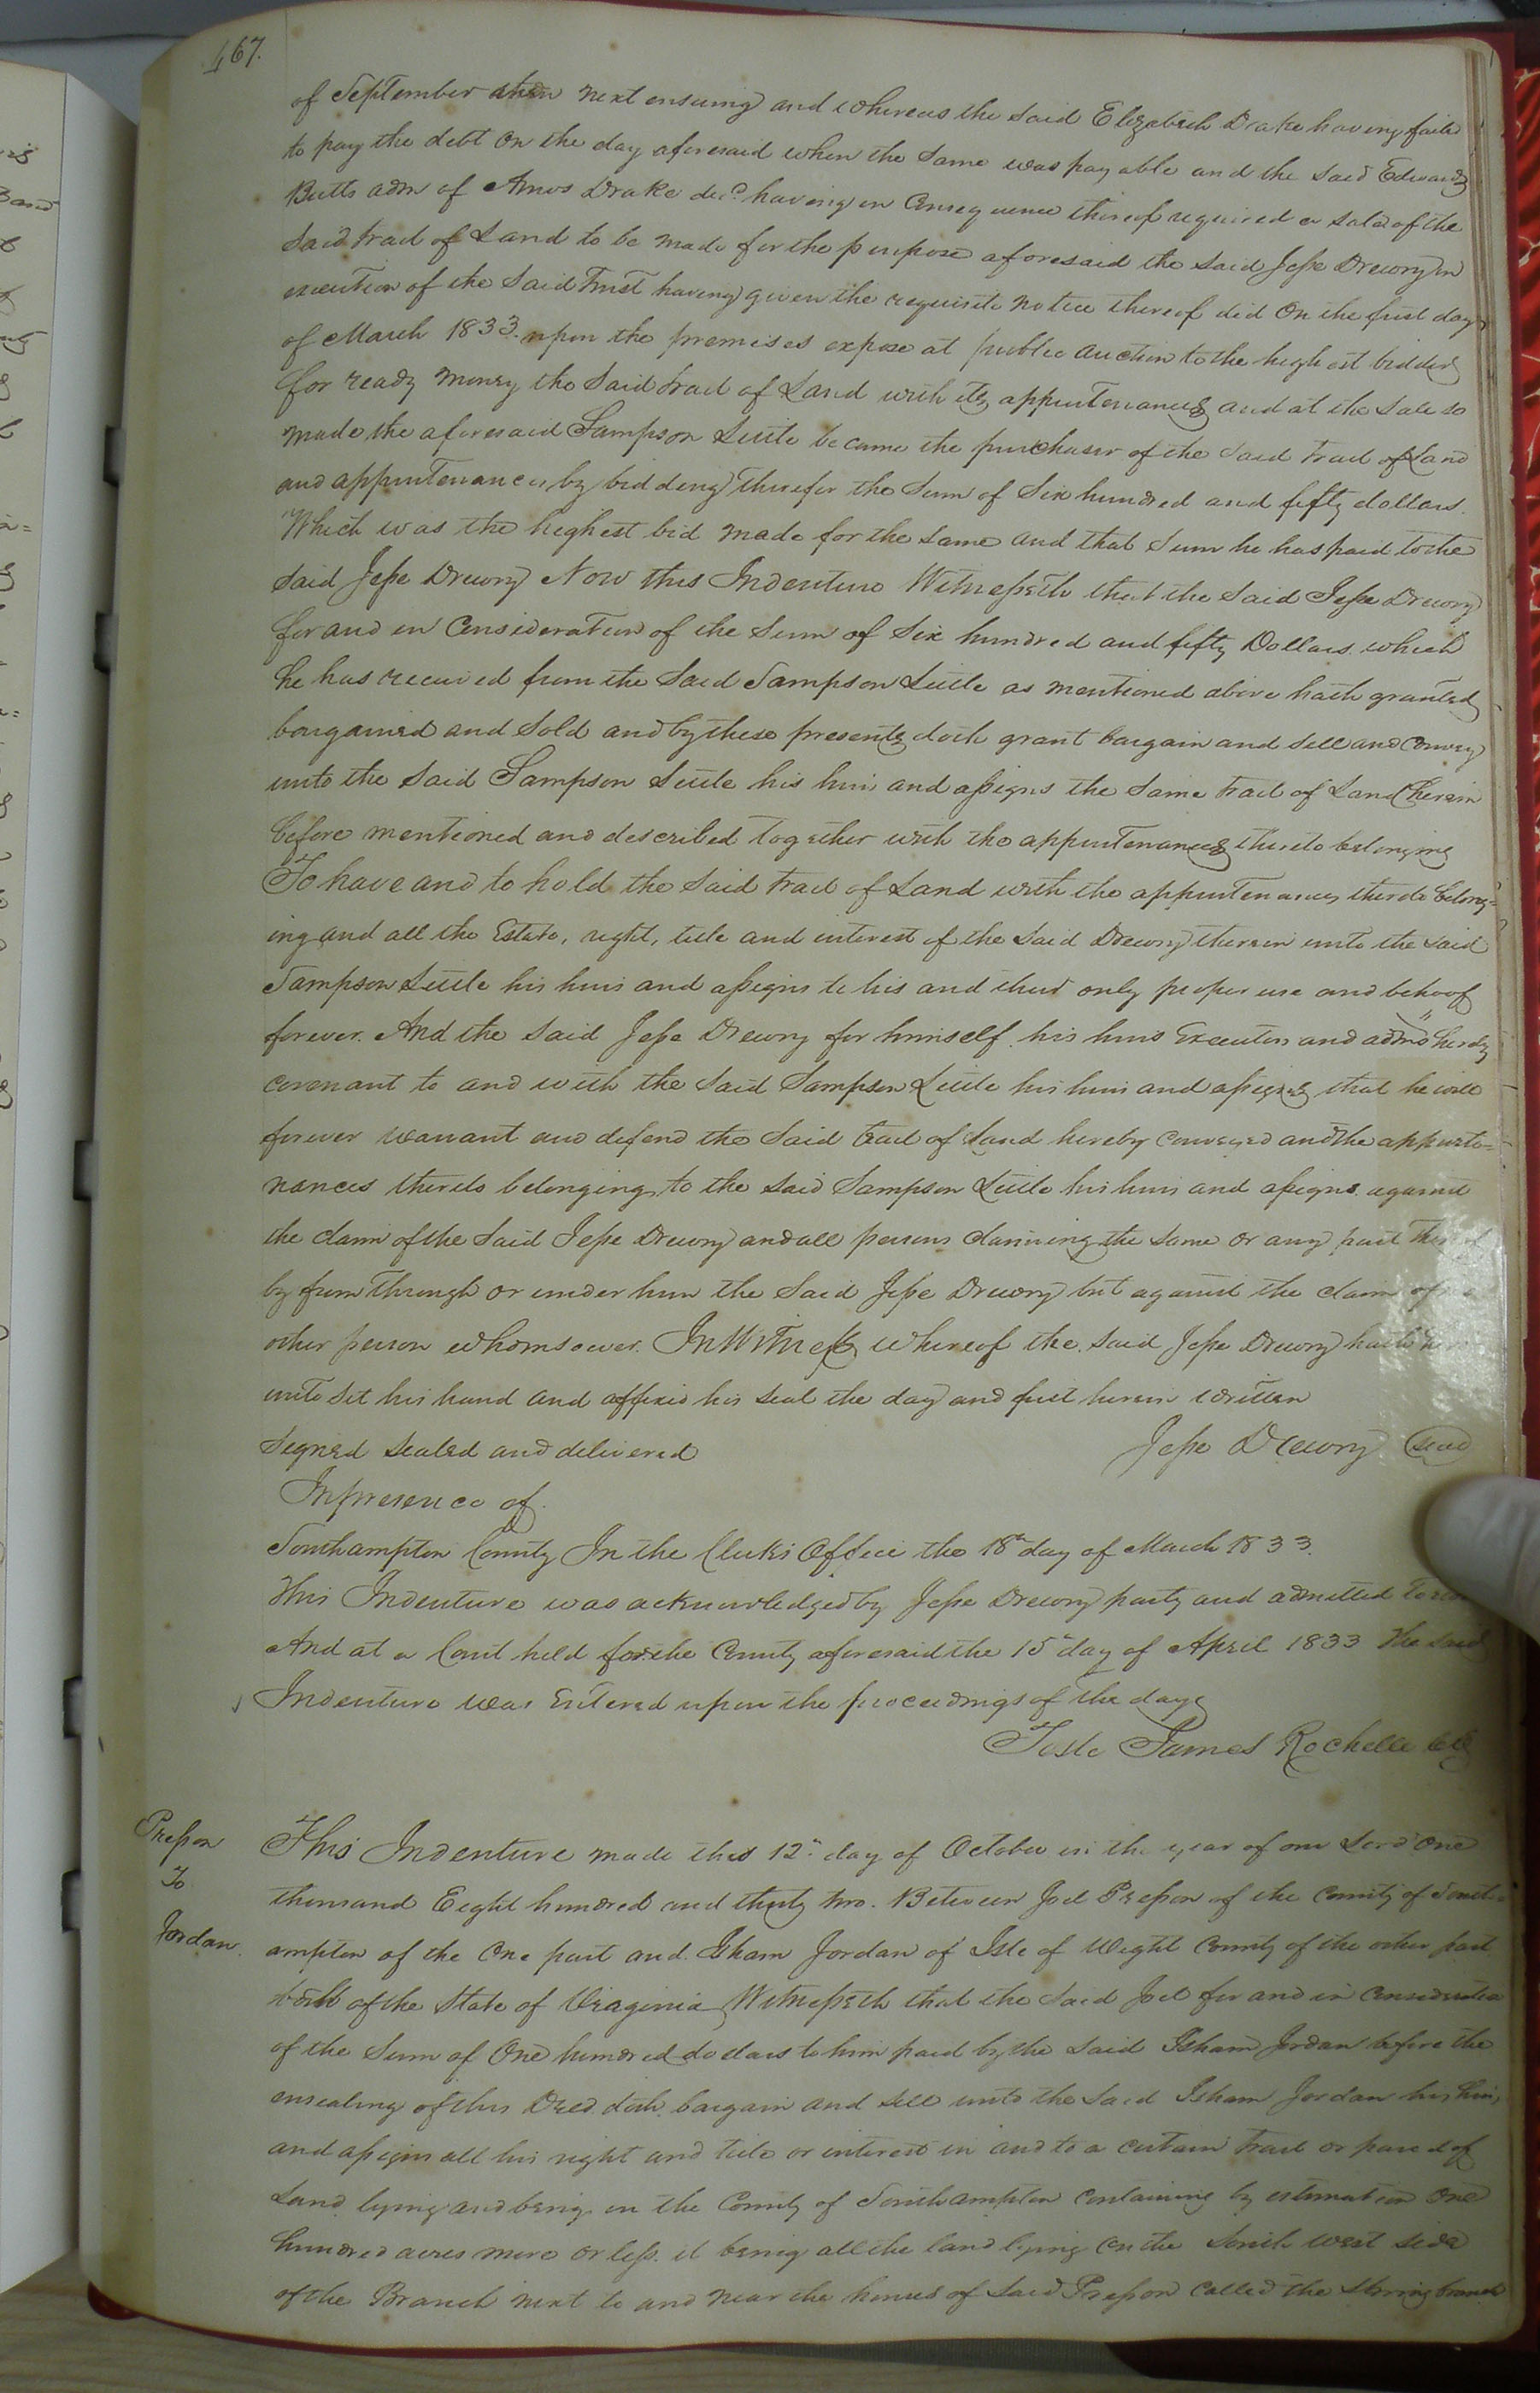 467.
of September then next ensuing and whereas the said Elizabeth Drake having faild
to pay the debt on the day aforesaid when the same was payable and the said Edward
Butts adm of Amos Drake decd. having in Consequence thereof required a sale of the
said tract of Land to be made for the purpose aforesaid the said Jesse Drewry in
execution of the said Trust having given the requisite notice thereof did on the first day
of March 1833. upon the premises expose at public auction to the highest bidder
for ready money the said tract of Land with its appurtenances and at the sale so
made the aforesaid Sampson Little became the purchaser of the said tract of Land
and appurtenances by bidding therefor the sum of Six hundred and fifty dollars.
Which was the highest bid made for the same and that sum he has paid to the
said Jesse Drewry Now this Indenture Witnesseth that the said Jesse Drewry
for and in Consideration of the sum of Six hundred and fifty Dollars which
he has received from the said Sampson Little as mentioned above hath granted
bargained and sold and by these presents doth grant bargain and sell and convey
unto the said Sampson Little his heirs and assigns the same tract of Land herein
before mentioned and described together with the appurtenances thereto belonging
To have and to hold the said tract of Land with the appurtenances thereto belong=
ing and all the Estate, right, title and interest of the said Drewry therein unto the said
Sampson Little his heirs and assigns to his and their only proper use and behoof
forever. And the said Jesse Drewry for himself his heirs Executors and admrs hereby
covenant to and with the said Sampson Little his heirs and assigns that he will
forever warrant and defend the said tract of Land hereby conveyed and the appurte=
nances thereto belonging to the said Sampson Little his heirs and assigns against
the claim of the said Jesse Drewry and all persons claiming the same or any part
by from through or under him the said Jesse Drewry but against the claim of
other person whomsoever. In Witness whereof the said Jesse Drewry hath
unto set his hand and affixed his seal the day and first herein written
Signed sealed and delivered Jesse Drewry (seal)
In presence of
Southampton County In the Clerks Office the 18th day of March 1833.
This Indenture was acknowledged by Jesse Drewry party and admitted to
And at a Court held for the County aforesaid the 15th day of April 1833 The said
Indenture was Entered upon the proceedings of the day
Teste James Rochelle clk
Presson
To
Jordan.
This Indenture made this 12th day of October in the year of our Lord One
thousand Eight hundred and thirty two. Between Joel Presson of the County of South
ampton of the one part and Isham Jordan of Isle of Wight County of the other part
both of the State of Virginia Witnesseth that the said Joel for and in Consideration
of the sum of One hundred dollars to him paid by the said Isham Jordan before the
ensealing of this Deed doth bargain and sell unto the said Isham Jordan his heirs
and assigns all his right and title or interest in and to a certain tract or parcel of
Land lying and being in the County of Southampton containing by estimation One
hundred acres more or less. it being all the land lying on the South west side
of the Branch next to and near the house of said Presson called the Spring branch